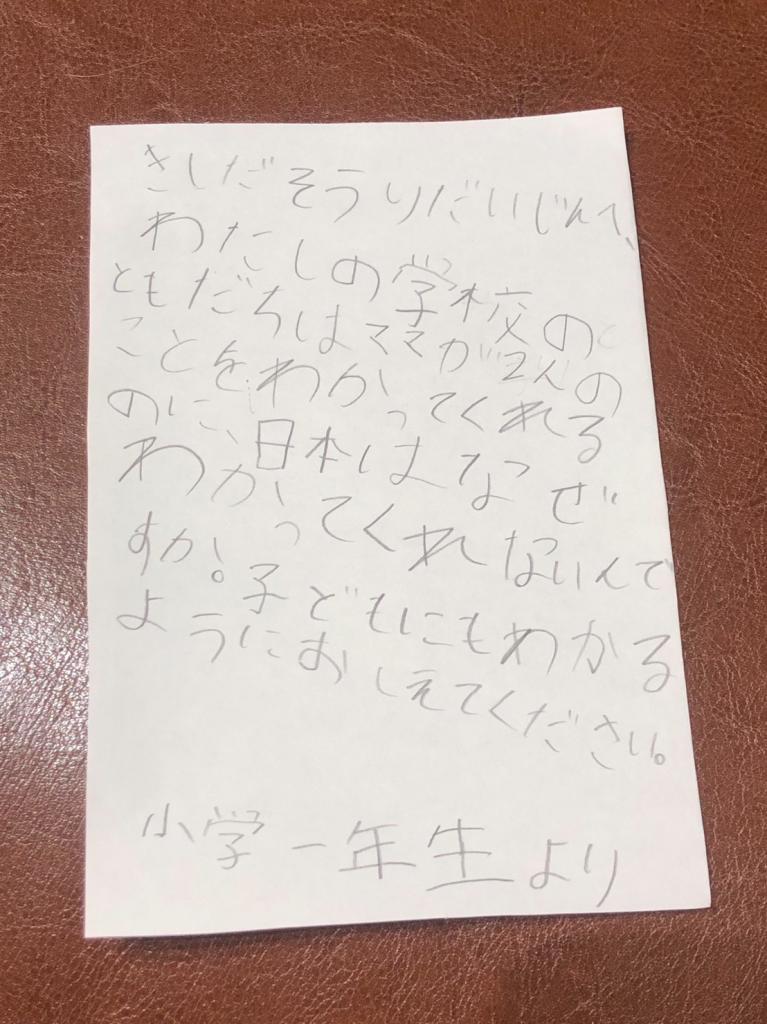 きしだそうりだいじんへ、
わたしの学校の
ともだちはママが2人の
ことをわかってくれる
のに、日本はなぜ
わかってくれないんで
すか!子どもにもわかる
ようにおしえてください。
小学一年生より